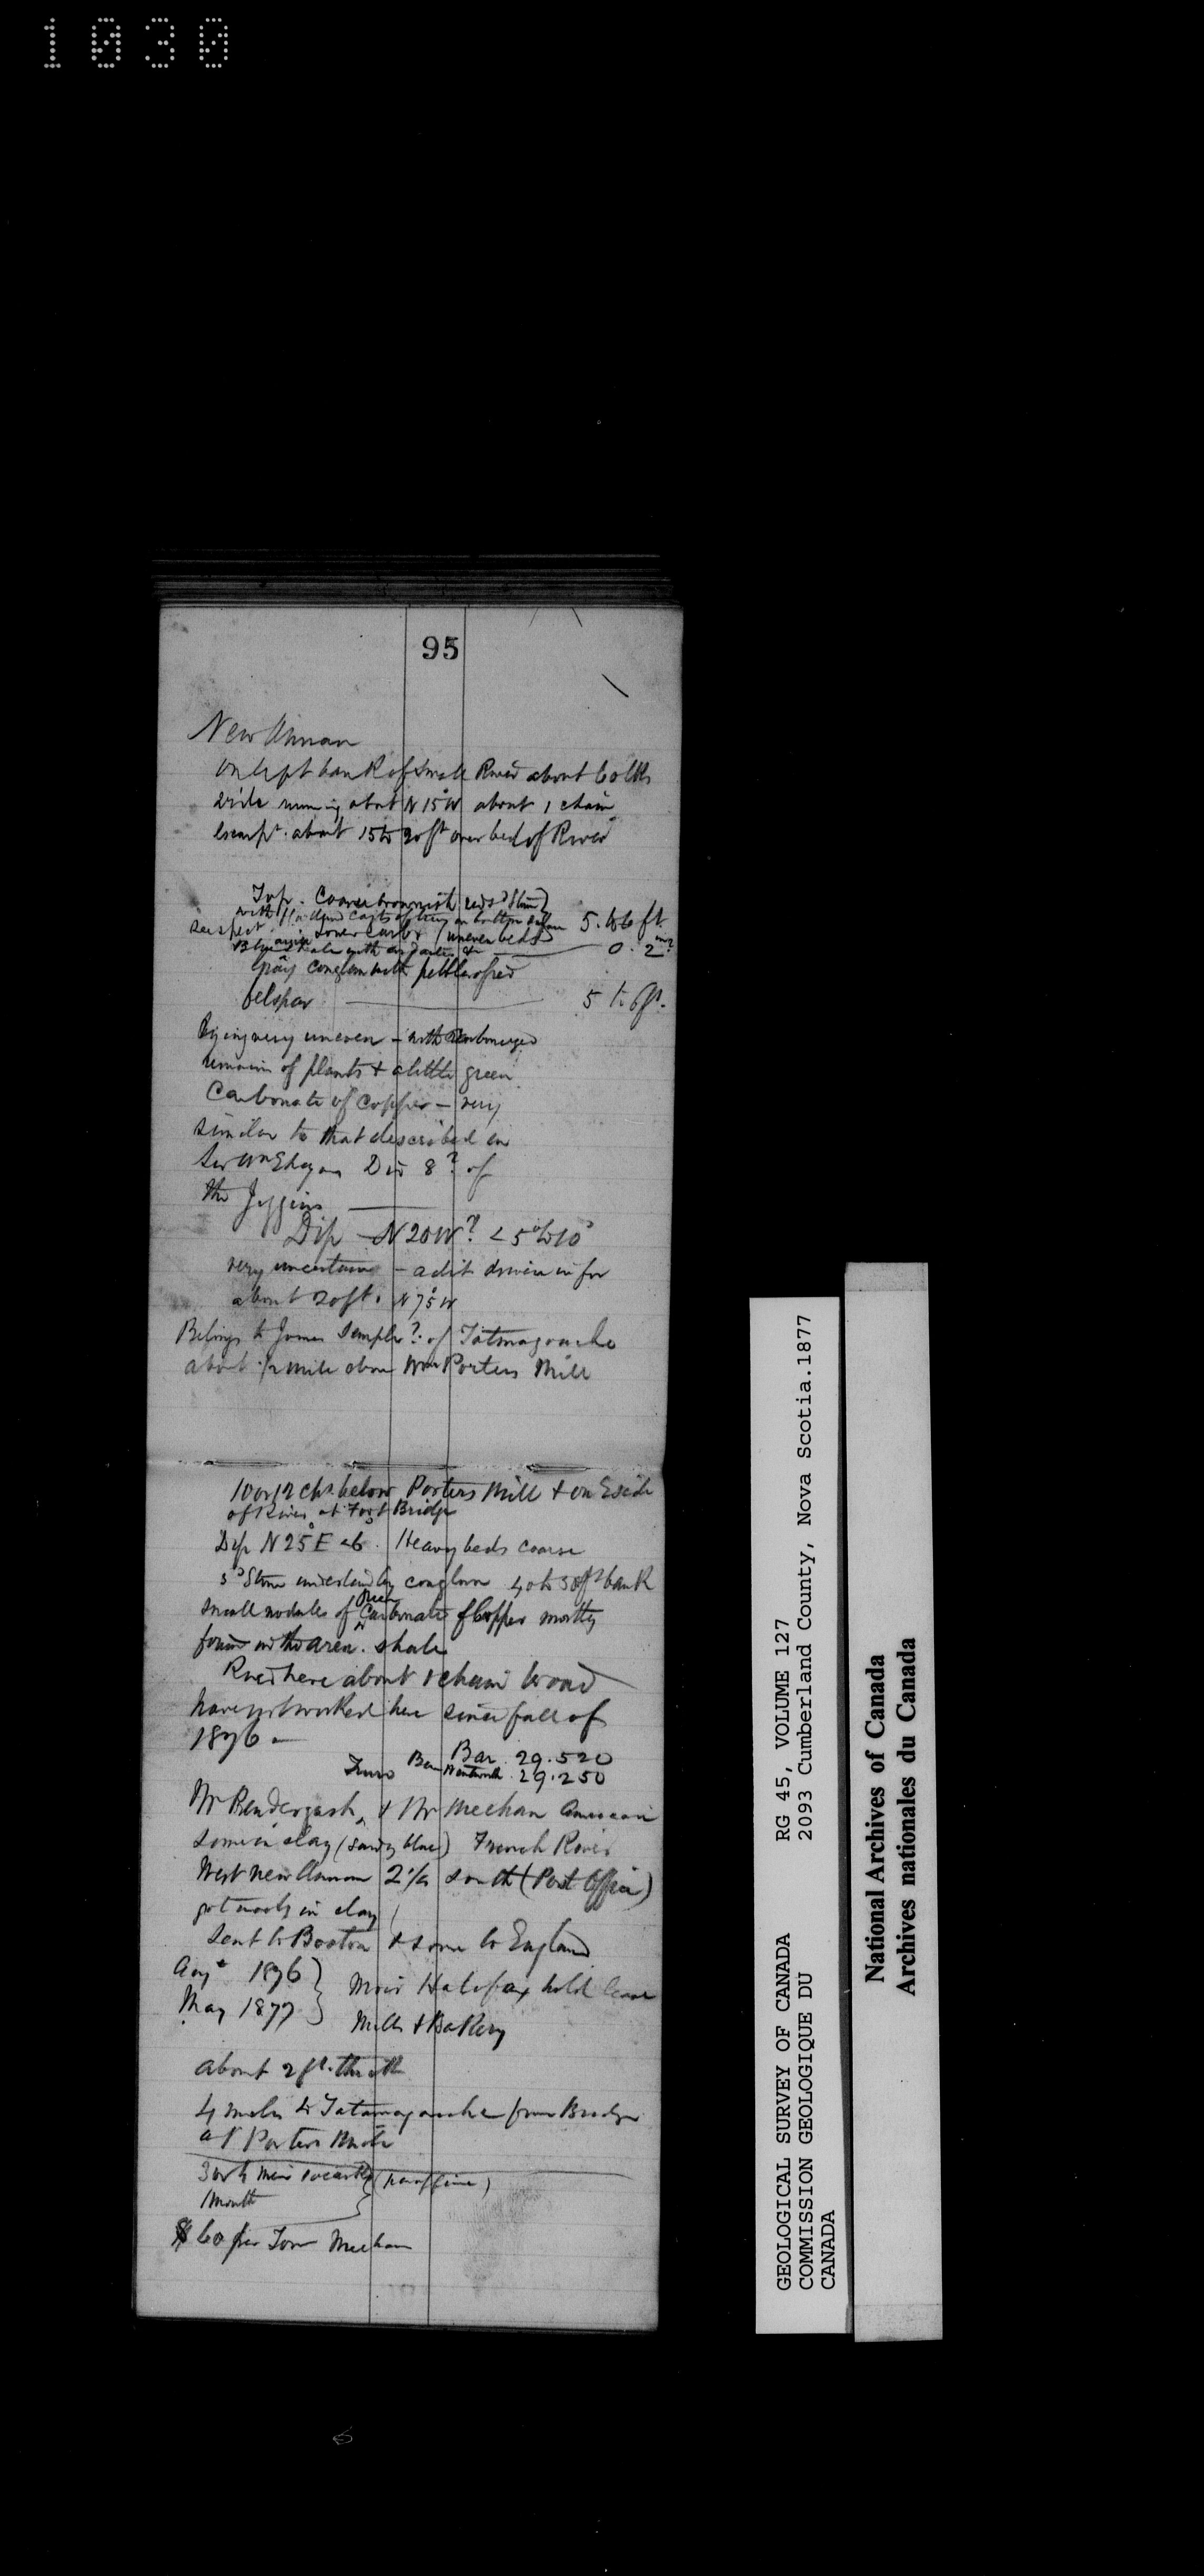 1030
95
New Annan
On left bank of Small River about 60 lks
wide running about N 15° W about 1 chain
escarpt. about 15 to 20 ft over bed of River
Top. Coarse brownish red Stone
with casts of on bottom
suspect Lower Carb. (uneven beds) 5. to 6 ft
Blue shale with 0. 2 in?
Gray conglom with pebbles of red
felspar 5 to 6 ft.
Lying very uneven - with carbonized
remains of plants & a little green
Carbonate of Copper - very
similar to that described in
Sir Wm Div 8? of
the Joggins
Dip - N 20 W? < 5° to 10°
very uncertain - adit driven in for
about 20 ft. N 75° W
Belongs to James Semple? of Tatmagouche
about 1/2 mile above Wm Porters Mill
10 or 12 chs. below Porters Mill & on E side
of River at Foot Bridge
Dip N 25° E < 6°. Heavy beds coarse
Stone underlaid by conglom 40 to 50 ft bank
small nodules of green Carbonate of Copper mostly
found in the aren. shale
River here about 1 chain broad
have not worked here since fall of
1876 -
Bar. 29.520
Truro Bar Wentworth 29.250
Mr Pendergast, & Mr Meehan American
some in clay (sandy blue) French River
West New Annan 2 1/2 south (Post Office)
got mostly in clay
sent to Boston & some to England
Augt 1876 }
May 1877 } Moir Halifax hold lease
Mills & Bakery
about 2 ft. thick
4 miles to Tatamagouche from Bridge
at Porters
3 or 4 men (paraffine)
1 month
$60 per Ton Meehan
GEOLOGICAL SURVEY OF CANADA RG 45, VOLUME 127
COMMISSION GEOLOGIQUE DU 2093 Cumberland County, Nova Scotia.1877
CANADA
National Archives of Canada
Archives nationales du Canada